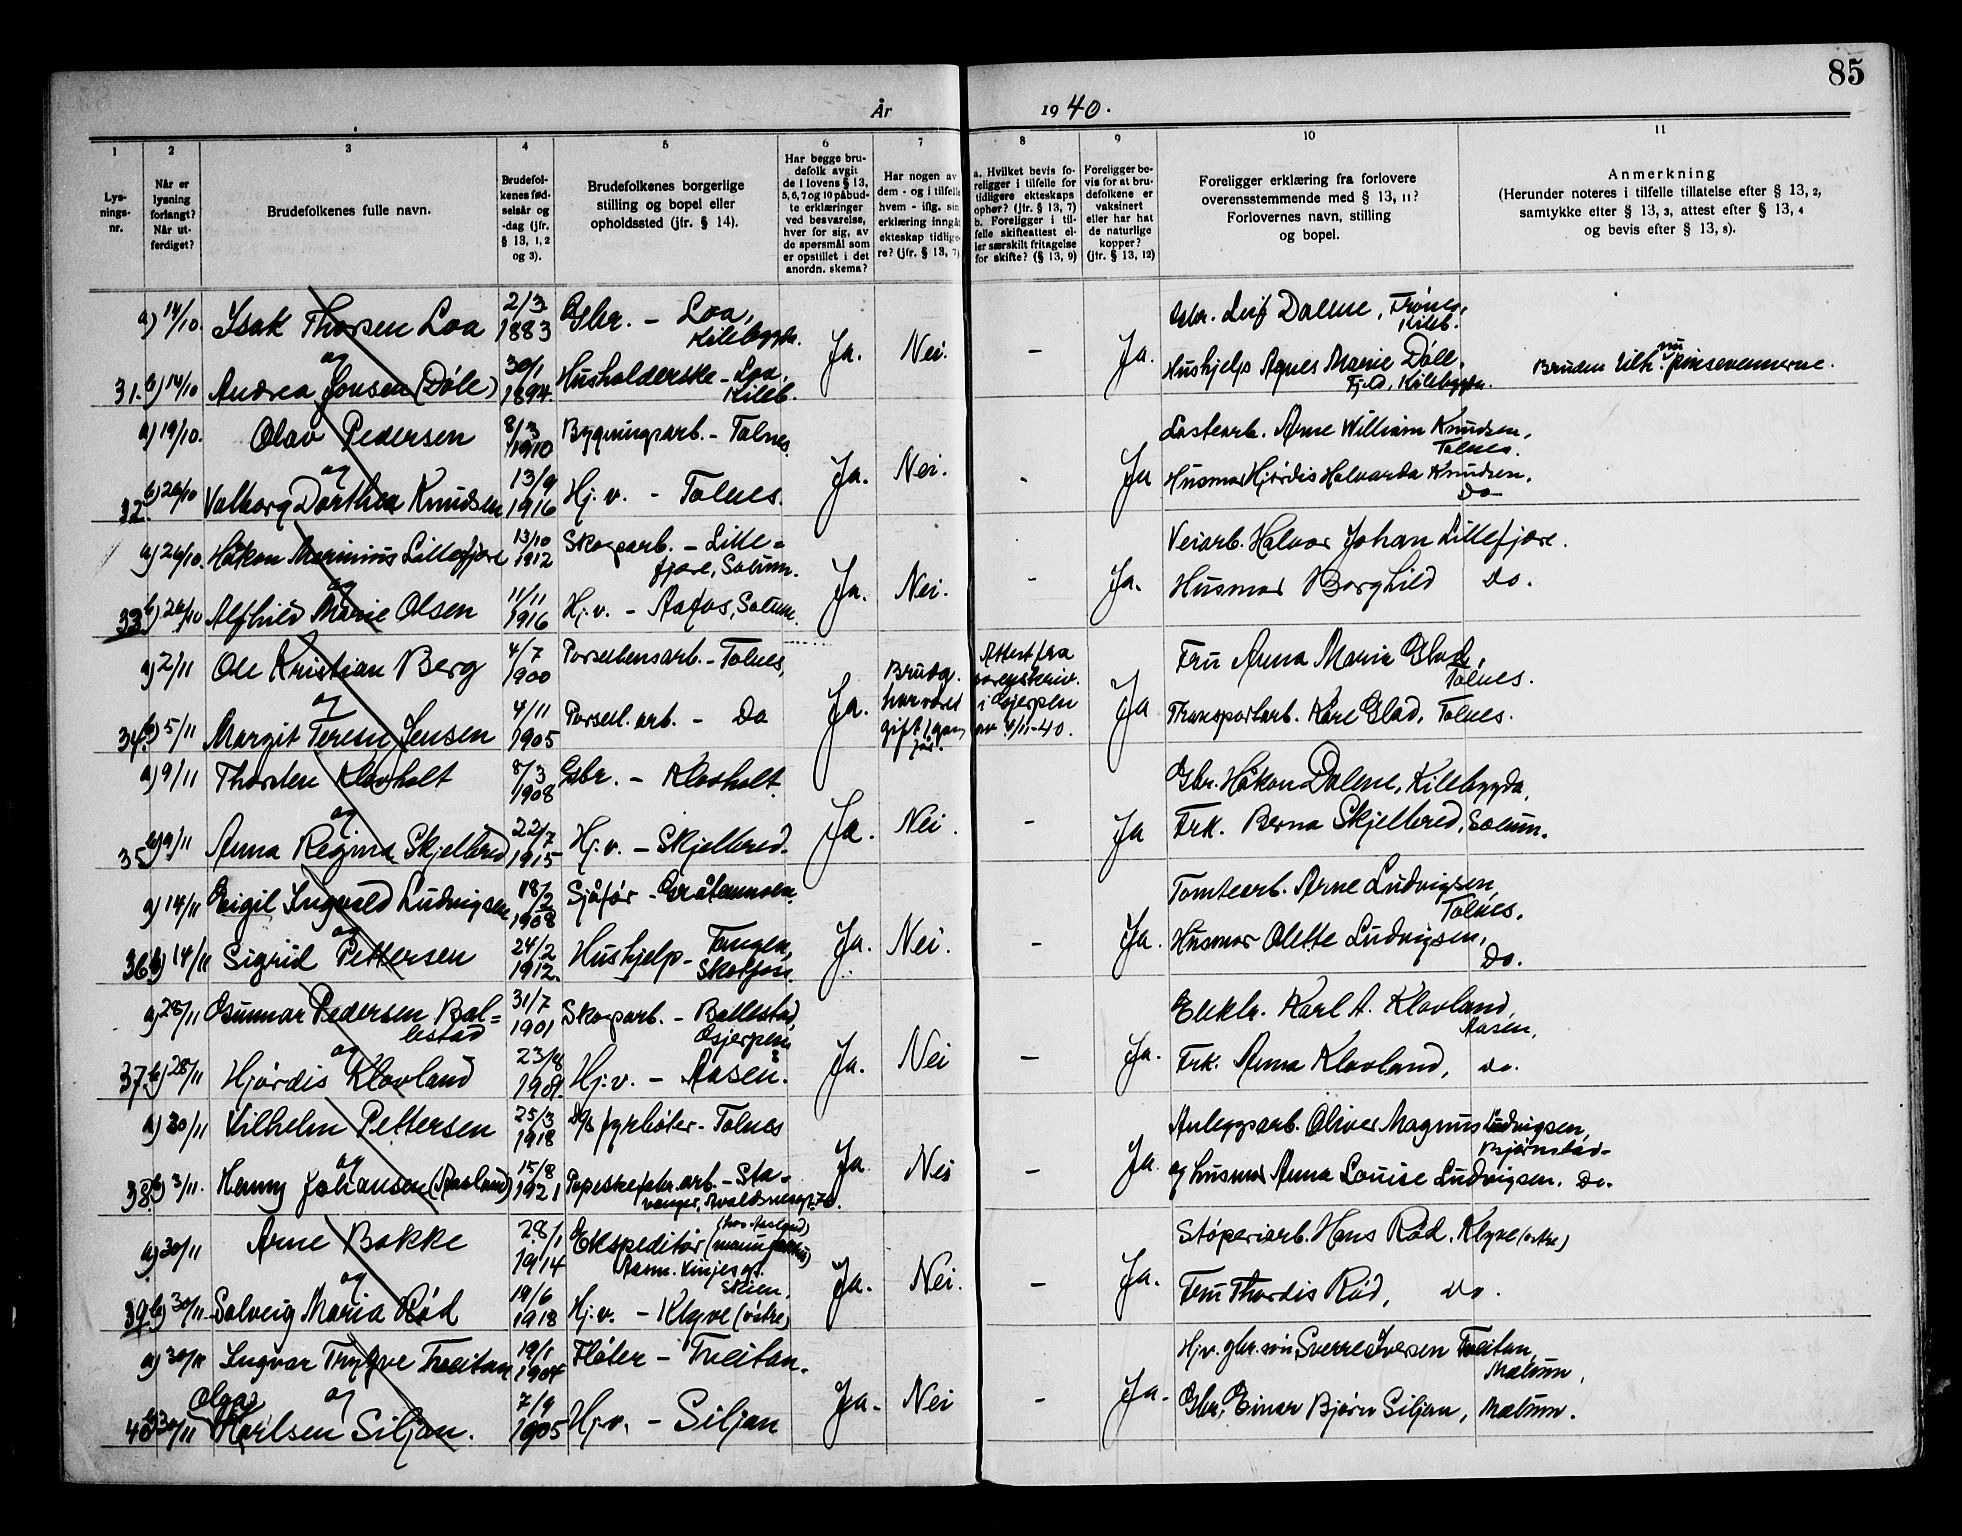 85
År 1940.
1 2 3 4 5 6 7 8 9 10 11
Lys-
nings-
nr.
Når er
lysning
forlangt?
Når ut-
ferdiget?
Brudefolkenes fulle navn.
Brudefol-
kenes fød-
selsår og
-dag (jfr.
§ 13, 1, 2
og 3).
Brudefolkenes borgerlige
stilling og bopel eller
opholdssted (jfr. § 14).
Har begge bru-
defolk avgit
de i lovens § 13,
5, 6, 7 og 10 påbud-
te erklæringer
ved besvarelse,
hver for sig, av
de spørsmål som
er opstillet i det
anordn. skema?
Har nogen av
dem - og i tilfelle
hvem - iflg. sin
erklæring inngått
ekteskap tidlige-
re? (jfr. § 13, 7)
a. Hvilket bevis fo-
religger i tilfelle for
tidligere ekteskaps
ophør? (jfr. § 13, 7)
b. Foreligger i til-
felle skifteattest el-
ler særskilt fritagelse
for skifte? (§ 13, 9)
Foreligger be-
vis for at bru-
defolkene er
vaksinert
eller har hat
de naturlige
kopper?
(jfr. § 13, 12)
Foreligger erklæring fra forlovere
overensstemmende med § 13, 11?
Forlovernes navn, stilling
og bopel.
Anmerkning
(Herunder noteres i tilfelle tillatelse efter § 13, 2,
samtykke efter § 13, 3, attest efter § 13, 4
og bevis efter § 13, 8).
a) 14/10. Isak Thorsen Loa 2/3 1883 Gbr. - Loa, Kilebygda. Gbr. Leif Dalene, Kileb.
og Ja. Nei. - Ja.
31. b) 14/10 Andrea Jonsen (Døle) 30/1 1894. Husholderske - Loa, Kileb. Hushjelp Agnes Marie Døle, Kilebygda. Bruden tilh. nu pinsevennerne.
a) 19/10. Olav Pedersen 8/3 1910 Bygningsarb. - Tolnes. Lastearb. Arne William Knudsen, Tolnes.
og Ja. Nei. - Ja
32. b) 26/10 Valborg Dorthea Knudsen 13/9 1916 Hj.v. - Tolnes. Husmor Hjørdis Halvarda Knudsen, Do
a) 26/10. Håkon Marinius Lillefjære 13/10 1912 Skogarb. - Lille-
fjære, Solum. Veiarb. Halvor Johan Lillefjære.
og Ja. Nei. - Ja.
33. b) 26/10 Alfhild Marie Olsen 11/11 1916 Hj.v. - Aafos, Solum. Husmor Borghild Do.
a) 2/11 Ole Kristian Berg 4/7 1900 Porselensarb. - Tolnes, Fru Anna Marie Glad, Tolnes.
og Ja. Brudg. har været gift 1 gang før. Attest fra sorenskriv. i Gjerpen av 4/11-40. Ja
34. b) 5/11 Margit Terese Jensen 4/11 1905 Porsel. arb. - Do Transportarb. Kåre Glad, Tolnes.
a) 9/11 Thorsten Klovholt 8/3 1908 Gbr. - Klovholt. Gbr. Håkon Dalene, Kilebygda,
og Ja. Nei. - Ja
35. b) 9/11 Anna Regine Skjelbred 22/7 1915 Hj.v. - Skjelbred. Frk. Berna Skjelbred, Solum.
a) 14/11 Eigil Ingvald Ludvigsen 18/2 1908 Sjåfør - Gråtenmoen. Tomtearb. Arne Ludvigsen, Tolnes.
og Ja. Nei. - Ja.
36. b) 14/11 Sigrid Pettersen 24/2 1912. Hushjelp - Tangen, Skotfoss. Husmor Olette Ludvigsen, Do.
a) 28/11 Gunnar Pedersen Bal-
lestad 31/7 1901 Skogarb. - Ballestad, Gjerpen Elektr. Karl A. Klovland, Aasen,
og Ja. Nei - Ja.
37. b) 28/11 Hjørdis Klovland 1909. Hj.v. - Aasen. Frk. Anna Klovland, do.
a) 30/11 Vilhelm Pettersen 25/3 1918 D/S fyrbøter - Tolnes Anleggsarb. Oliver Magnus Ludvigsen, Bjørnstad-
og Ja Nei - Ja.
38. b) 3/11. Henny Johansen (Aasland) 15/8 1921 Papeskefabr.arb. - Sta-
vanger, og husmor Anna Louise Ludvigsen. Do.
a) 30/11 Arne Bakke 28/1 1914 Ekspeditør (manufaktur) Aasm. Vinjes gt. Skien. Støperiarb. Hans Rød. Klyve (østre)
og Ja. Nei. - Ja.
39. b) 30/11 Solveig Maria Rød 19/6 1918 Hj.v. - Klyve (østre) Fru Thordis Rød, Do.
a) 30/11 Ingvar Trygve Tveitan 19/1 1904 Fløter - Tveitan. Hj.v. gbr. søn Sverre Iversen Tveitan, Mælum,
Olga og Ja. Nei - Ja.
40. b) 30/11 Karlsen Siljan. 7/9 1905 Hj.v. - Siljan Gbr. Einar Bjørn Siljan, Mælum.